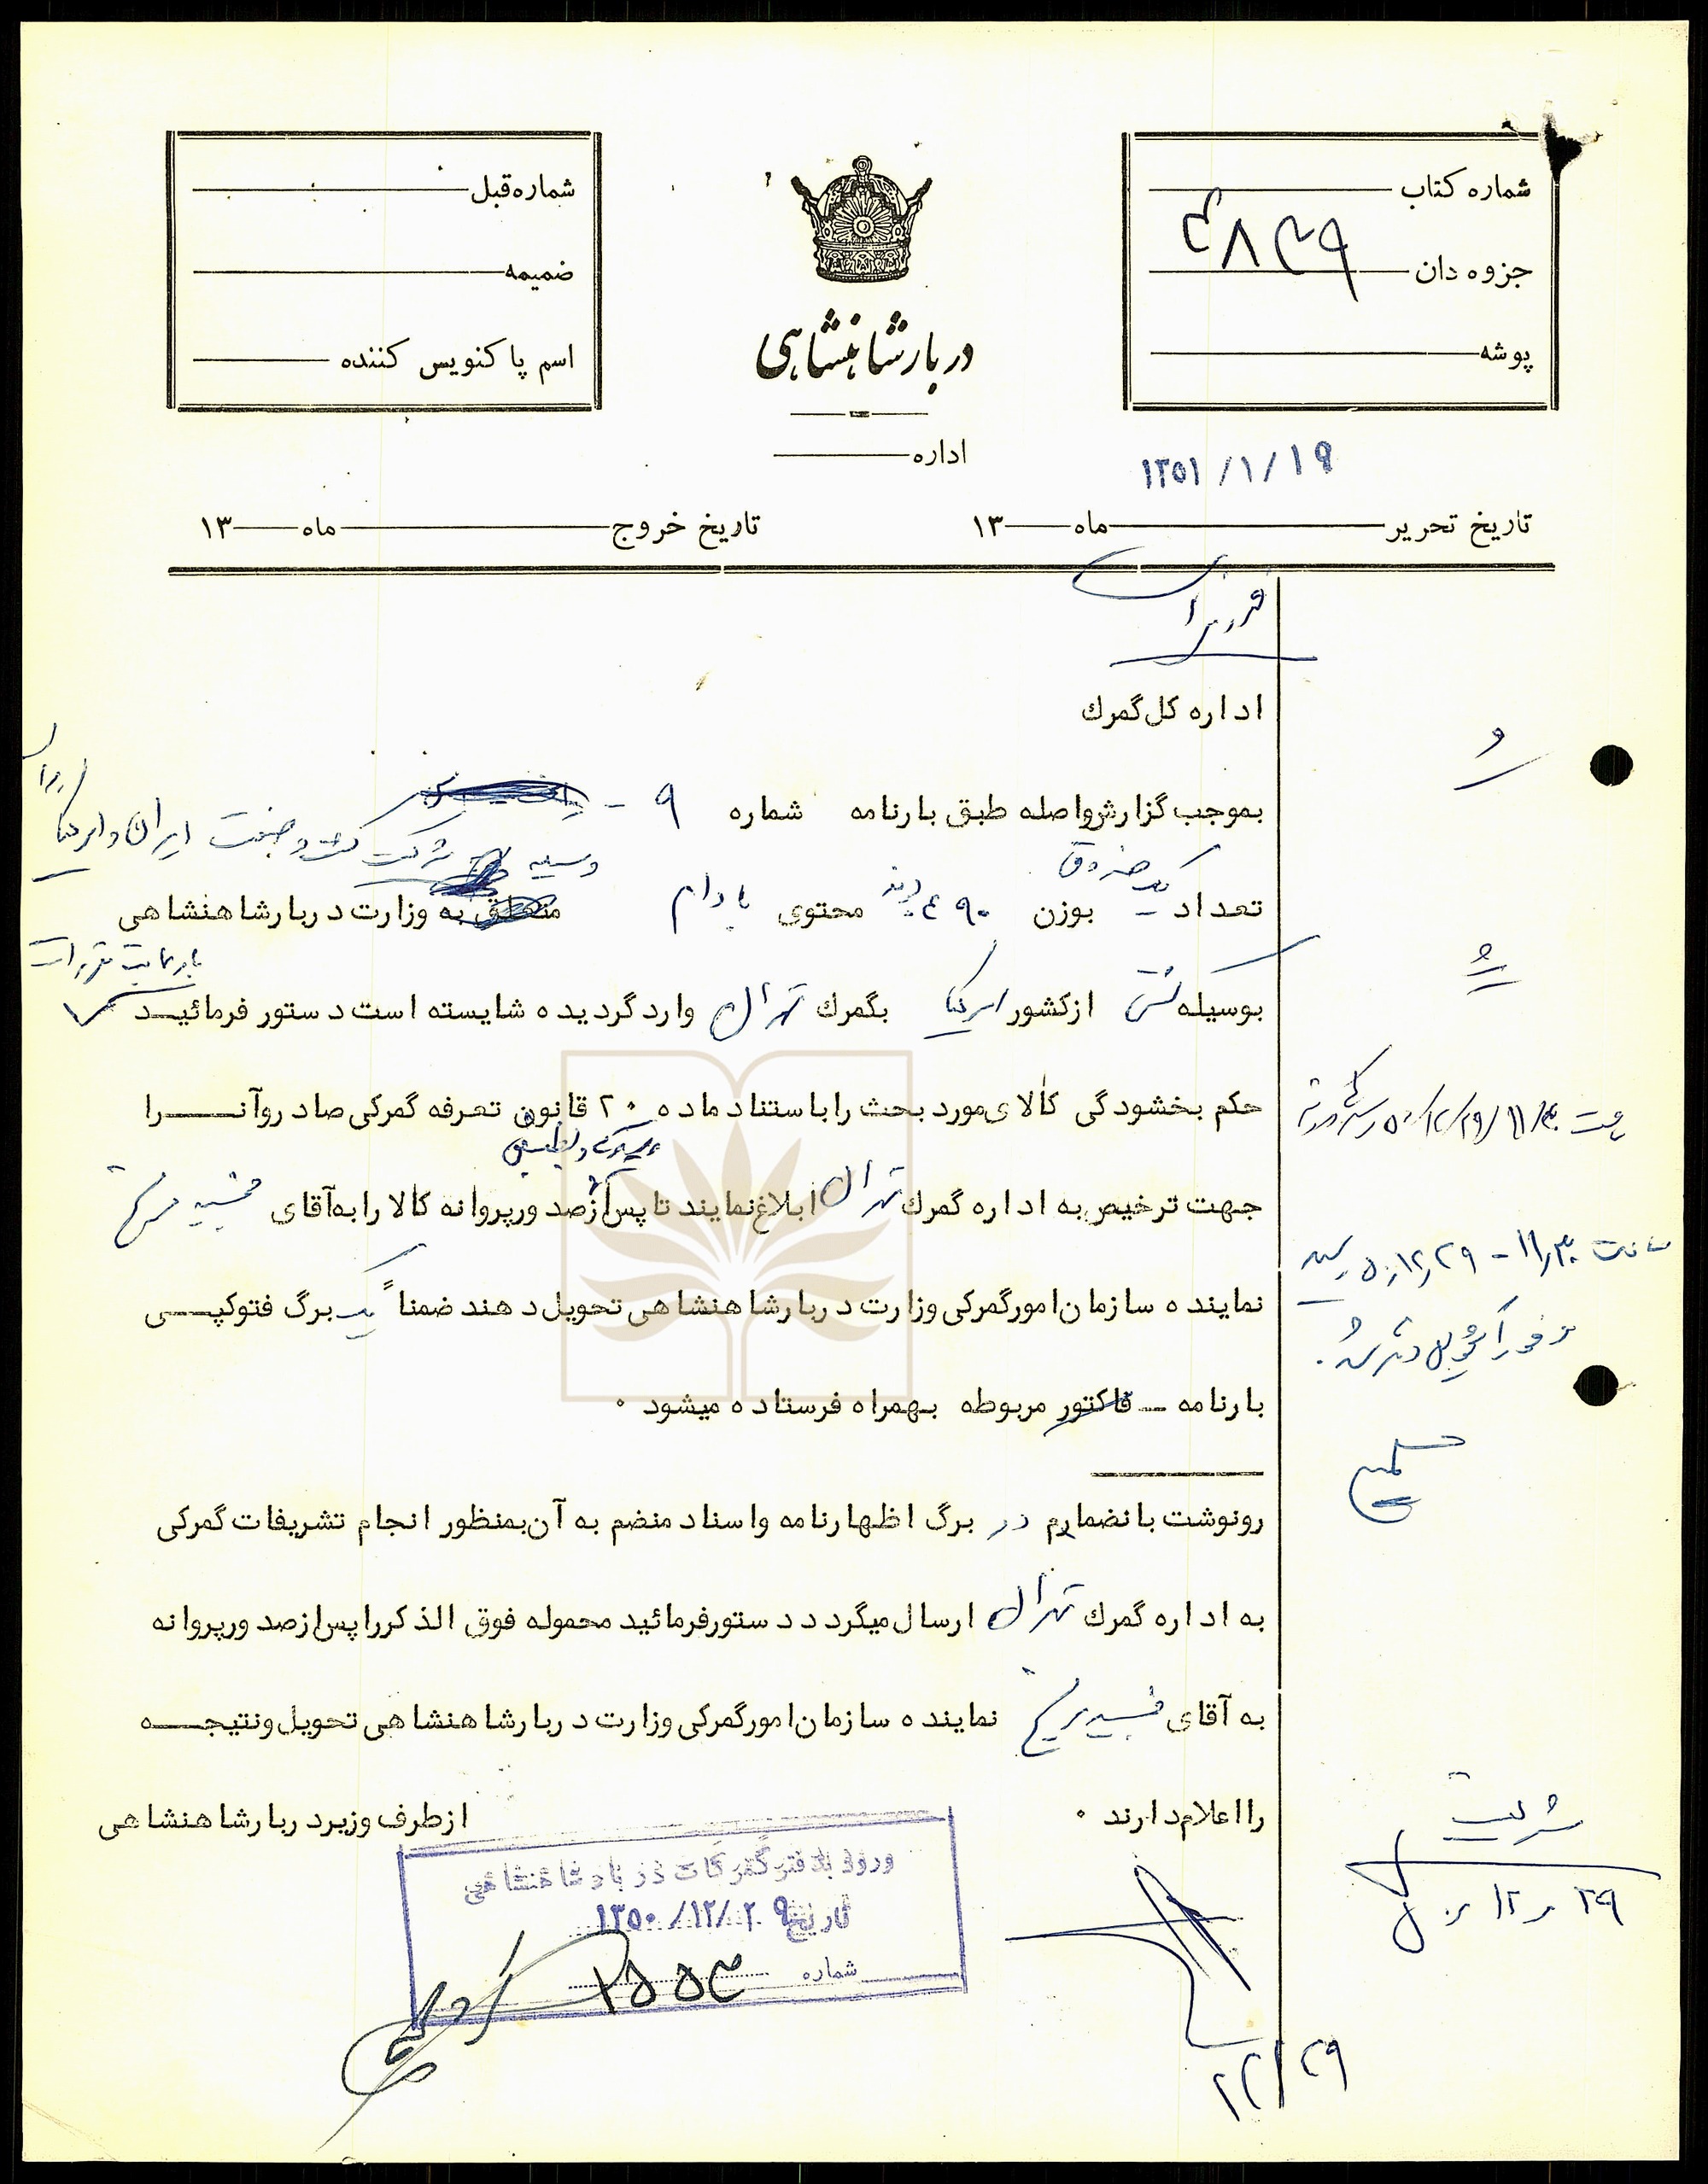 شماره کتاب
جزوه دان
پوشه
۴۸۲۹
دربار شاهنشاهی
اداره
شماره قبل
ضمیمه
اسم پاکنویس کننده
۱۳۵۱/۱/۱۹
تاریخ تحریر ماه ۱۳
تاریخ خروج ماه ۱۳
اداره کل گمرك
بموجب گزارش واصله طبق بارنامه شماره ۹ -
وسیله شرکت کشت و صنعت ایران و امریکا
تعداد یکصندوق بوزن ۴۹۰ پوند محتوی بادام متعلق به وزارت دربار شاهنشاهی
با رعایت مقررات
بوسیله کشتی از کشور امریکا بگمرك تهران وارد گردیده شایسته است دستور فرمائید
حکم بخشودگی کالای مورد بحث را با استناد ماده ۲۰ قانون تعرفه گمرکی صادر و آنرا
جهت ترخیص به اداره گمرك تهران ابلاغ نمایند تا پس از صدور پروانه کالا را به آقای
نماینده سازمان امور گمرکی وزارت دربار شاهنشاهی تحویل دهند ضمناً یک برگ فتوکپی
بارنامه - فاکتور مربوطه بهمراه فرستاده میشود ۰
رونوشت با نضمام دو برگ اظهارنامه و اسناد منضم به آن بمنظور انجام تشریفات گمرکی
به اداره گمرك تهران ارسال میگردد دستور فرمائید محموله فوق الذکر را پس از صدور پروانه
به آقای نماینده سازمان امور گمرکی وزارت دربار شاهنشاهی تحویل و نتیجه
را اعلام دارند ۰
از طرف وزیر دربار شاهنشاهی
ساعت ۱۱/۳۰ - ۵۰/۱۲/۲۹ رسید
ورود بدفتر گمرکات دربار شاهنشاهی
تاریخ ۱۳۵۰/۱۲/۲۹
شماره ۲۵۵۳
۲۹ ر ۱۲ ر ۵۰
۱۲/۲۹